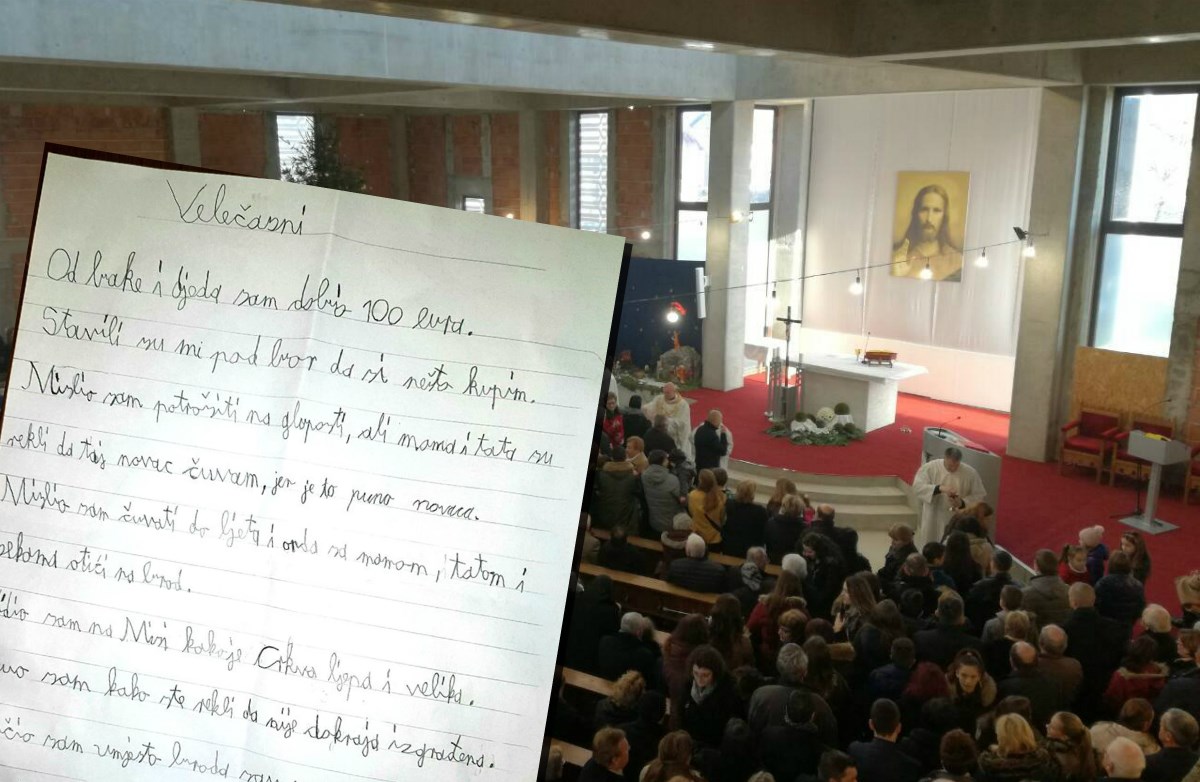 Velečasni
Od bake i djeda sam dobio 100 eura.
Stavili su mi pod bor da si nešto kupim.
Mislio sam potrošiti na gluposti, ali mama i tata su
rekli da taj novac čuvam, jer je to puno novaca.
Mislio sam čuvati do ljeta i onda sa mamom, tatom i
sekama otići na brod.
sam na Misi kako je Crkva lijepa i velika.
sam kako ste rekli da nije dokraja izgrađena.
sam umjesto broda